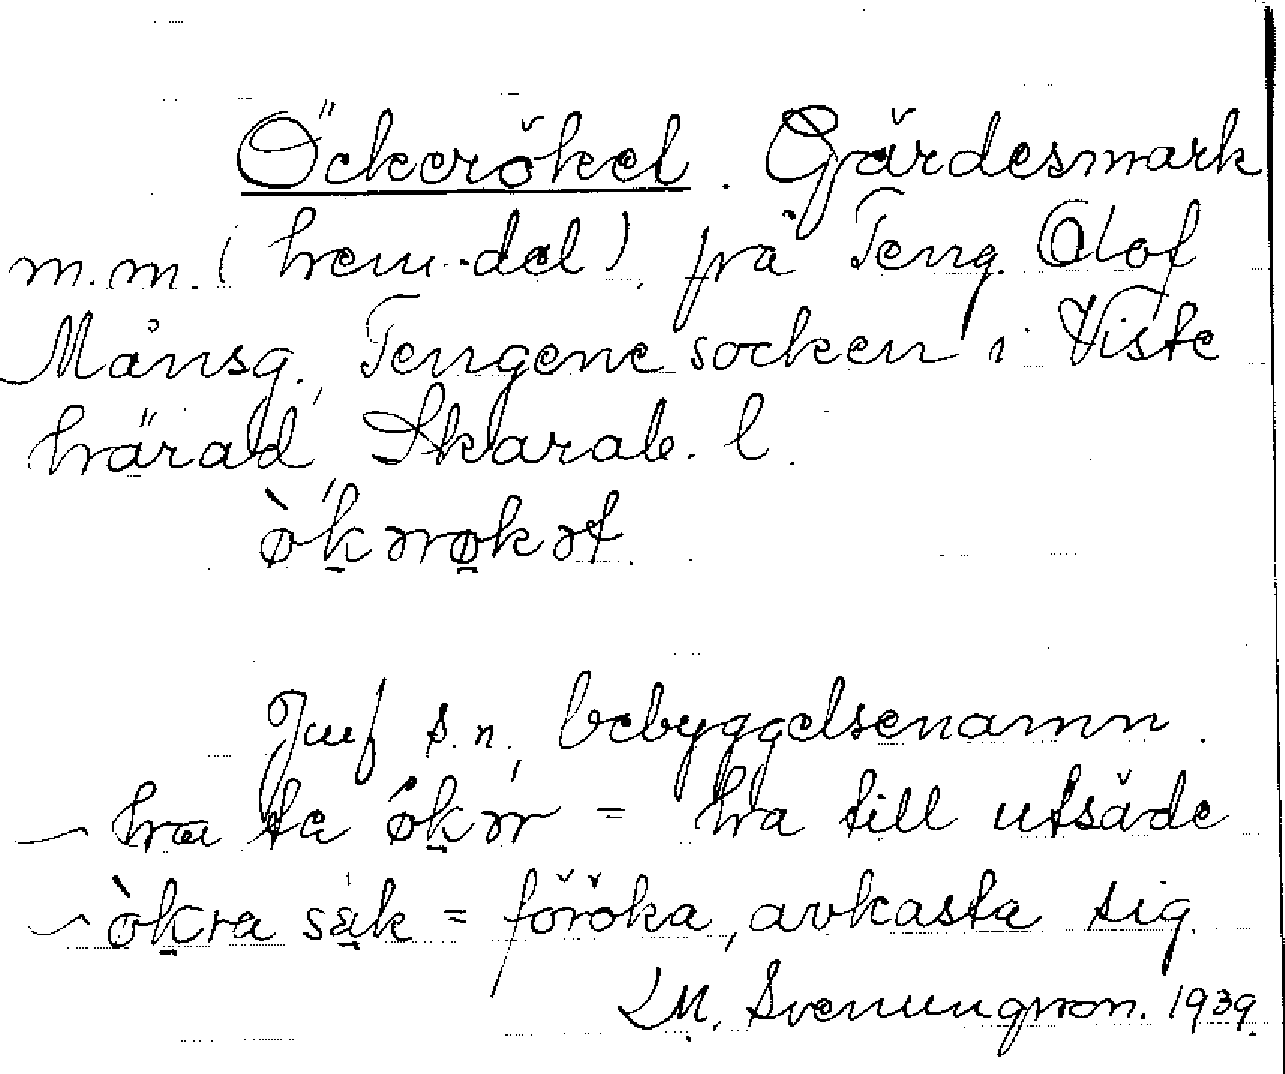 Öckerökel. Gärdesmark
m.m. (hem.del) på Teng. Olof
Månsg., Tengene socken i Viste
härad, Skarab. l.
økərøkət.
Jmf s.n., bebyggelsenamn.
ha te økər = ha till utsäde
økra sæk = föröka, avkasta sig.
M. Svenungsson. 1939.